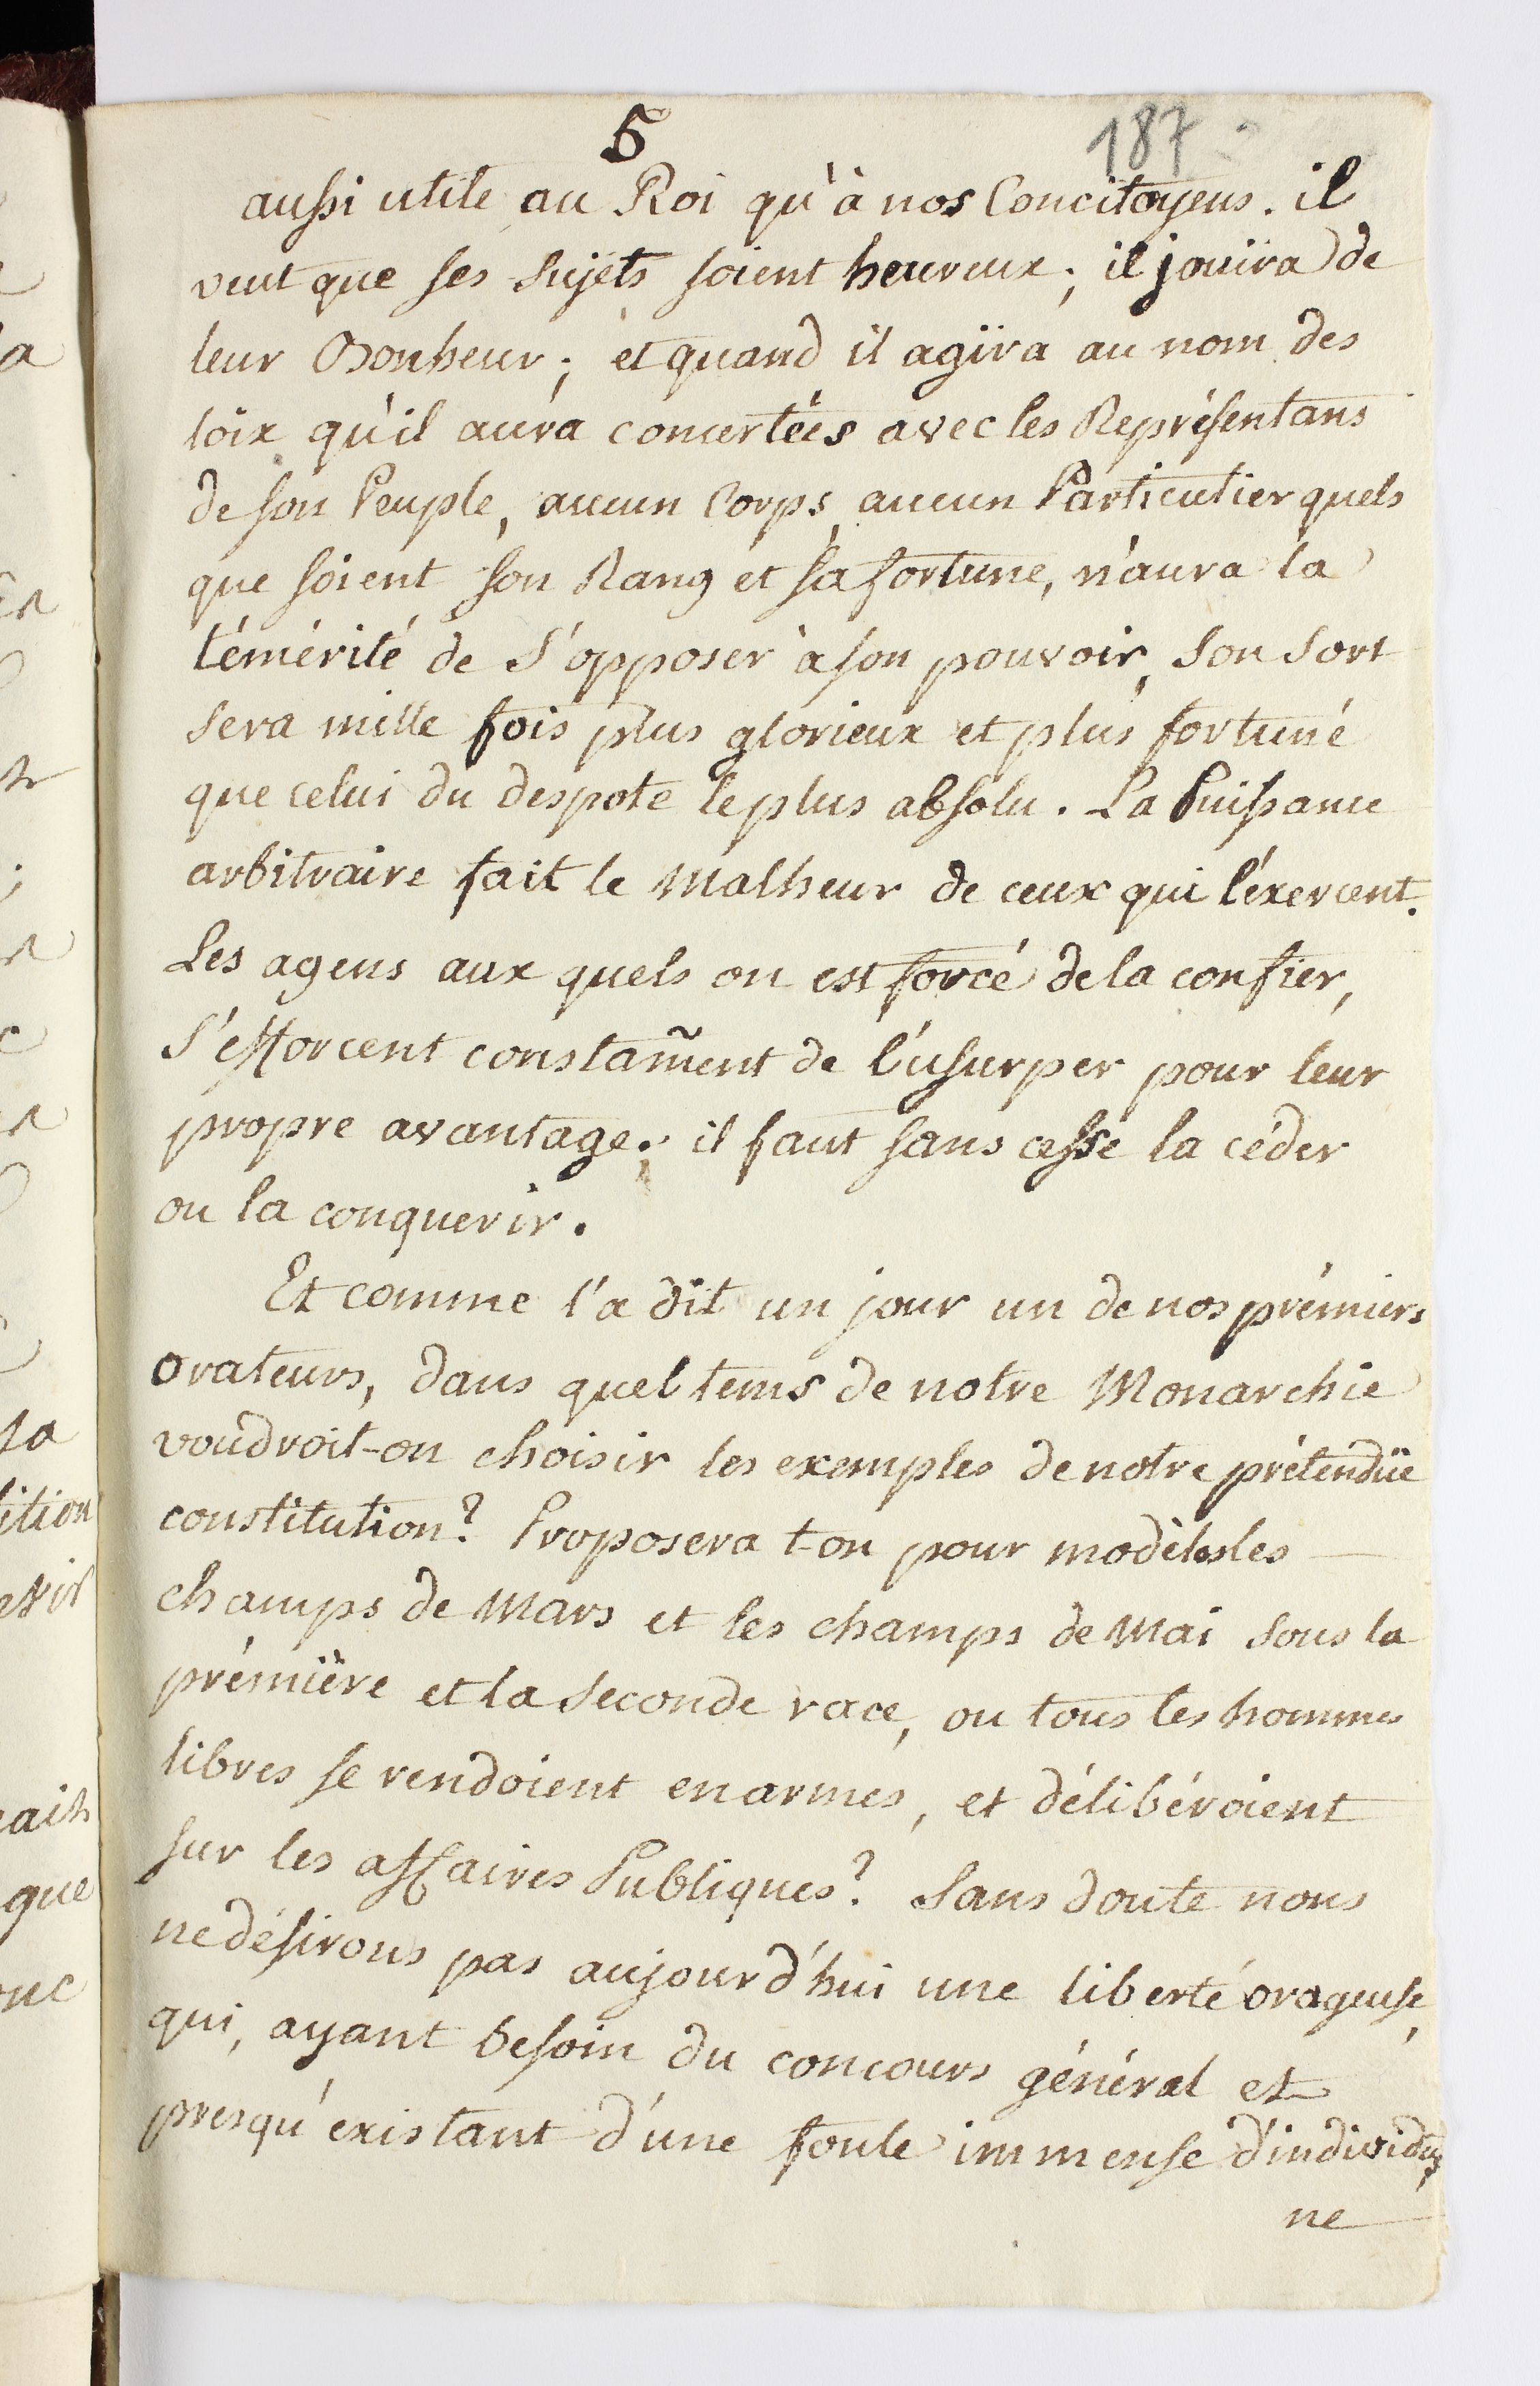 5
187
aussi utile au Roi qu'à nos Concitoyens. il
veut que ses Sujets soient heureux; il jouira de
leur Bonheur; et quand il agira au nom des
loix qu'il aura concertées avec les Représentans
de son Peuple, aucun Corps, aucun Particulier quels
que soient son Rang et sa fortune, n'aura la
témérité de S'opposer à son pouvoir, Son Sort
Sera mille fois plus glorieux et plus fortuné
que celui du despote le plus absolu. La Puissance
arbitraire fait le Malheur de ceux qui l'éxercent.
Les agens aux quels on est forcé de la confier,
S'efforcent constam̃ent de l'usurper pour leur
propre avantage; il faut sans cesse la céder
ou la conquerir.
Et comme l'a dit un jour un de nos prémiers
orateurs, dans quel tems de notre Monarchie
voudroit-on choisir les exemples de notre prétendüe
constitution? Proposera t-on pour modèles les
champs de Mars et les champs de Mai Sous la
prémière et la Seconde race, ou tous les hommes
libres se rendoient en armes, et délibéroient
sur les affaires Publiques? Sans doute nous
ne désirons pas aujourd'hui une liberté orageuse,
qui, ayant besoin du concours général et
presqu'existant d'une foule immense d'individus,
ne
la
ition
ait
que